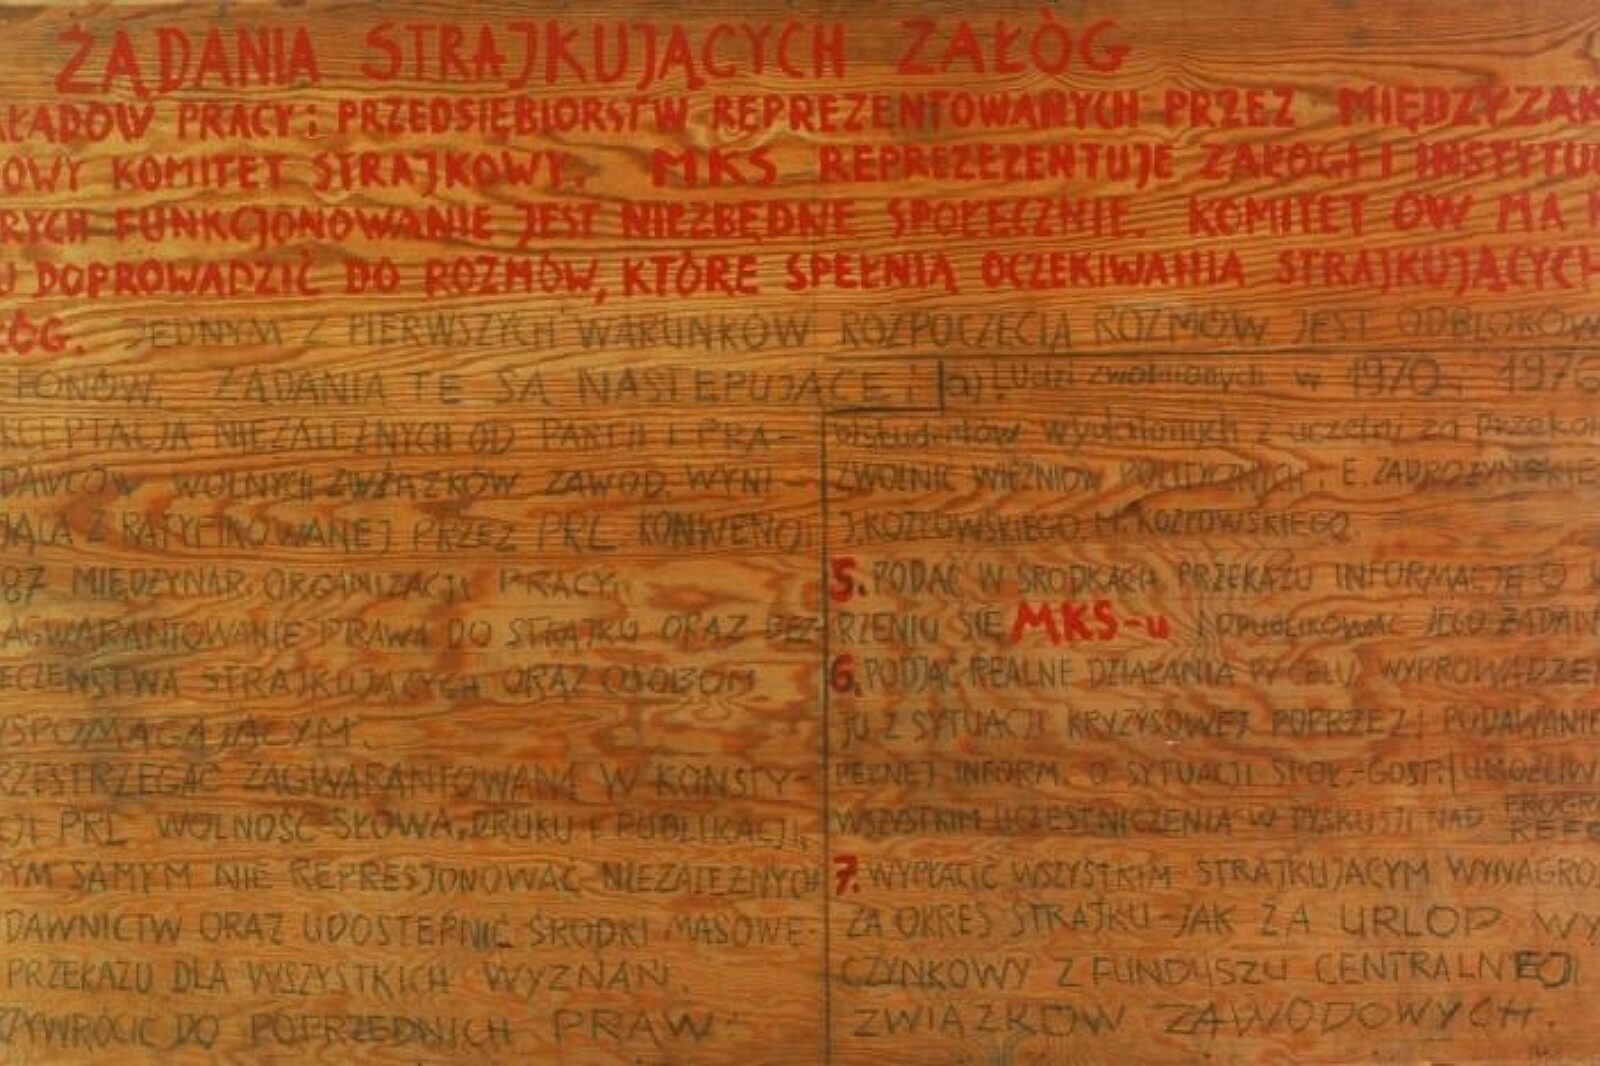 ŻĄDANIA STRAJKUJĄCYCH ZAŁÓG
KŁADÓW PRACY i PRZEDSIĘBIORSTW REPREZENTOWANYCH PRZEZ MIĘDZYZAK
OWY KOMITET STRAJKOWY. MKS REPREZEZENTUJE ZAŁOGI I INSTYTUC
RYCH FUNKCJONOWANIE JEST NIEZBĘDNE SPOŁECZNIE. KOMITET ÓW MA N
U DOPROWADZIĆ DO ROZMÓW, KTÓRE SPEŁNIĄ OCZEKIWANIA STRAJKUJĄCYCH
ŁÓG. JEDNYM Z PIERWSZYCH WARUNKÓW ROZPOCZĘCIA ROZMÓW JEST ODBLOKOW
FONÓW. ŻĄDANIA TE SĄ NASTĘPUJĄCE:
KCEPTACJA NIEZALEŻNYCH OD PARTII I PRA-
DAWCÓW WOLNYCH ZWIĄZKÓW ZAWOD. WYNI-
JĄCA Z RATYFIKOWANEJ PRZEZ PRL KONWENCJI
87 MIĘDZYNAR. ORGANIZACJI PRACY.
AGWARANTOWANIE PRAWA DO STRAJKU ORAZ BEZ-
ECZEŃSTWA STRAJKUJĄCYCH ORAZ OSOBOM
WSPOMAGAJĄCYM.
RZESTRZEGAĆ ZAGWARANTOWANĄ W KONSTY-
CJI PRL WOLNOŚĆ SŁOWA, DRUKU I PUBLIKACJI,
TYM SAMYM NIE REPRESJONOWAĆ NIEZALEŻNYCH
DAWNICTW ORAZ UDOSTĘPNIĆ ŚRODKI MASOWE-
PRZEKAZU DLA WSZYSTKICH WYZNAŃ.
RZYWRÓCIĆ DO POPRZEDNICH PRAW:
a). Ludzi zwolnionych w 1970, 1976
b) studentów wydalonych z uczelni za przekon
ZWOLNIĆ WIĘŹNIÓW POLITYCZNYCH: E. ZADROŻYŃSKIE
J. KOZŁOWSKIEGO. M. KOZŁOWSKIEGO.
5. PODAĆ W ŚRODKACH PRZEKAZU INFORMACJĘ O U
RZENIU SIĘ MKS-u I OPUBLIKOWAĆ JEGO ŻĄDANI
6. PODJĄĆ REALNE DZIAŁANIA W CELU WYPROWADZEN
JU Z SYTUACJI KRYZYSOWEJ POPRZEZ: PODAWANIE
PEŁNEJ INFORM. O SYTUACJI SPOŁ.-GOSP. UMOŻLIWI
WSZYSTKIM UCZESTNICZENIA W DYSKUSJI NAD PROGR
REFO
7. WYPŁACIĆ WSZYSTKIM STRAJKUJĄCYM WYNAGRO
ZA OKRES STRAJKU JAK ZA URLOP WY
CZYNKOWY Z FUNDUSZU CENTRALNEJ
ZWIĄZKÓW ZAWODOWYCH.